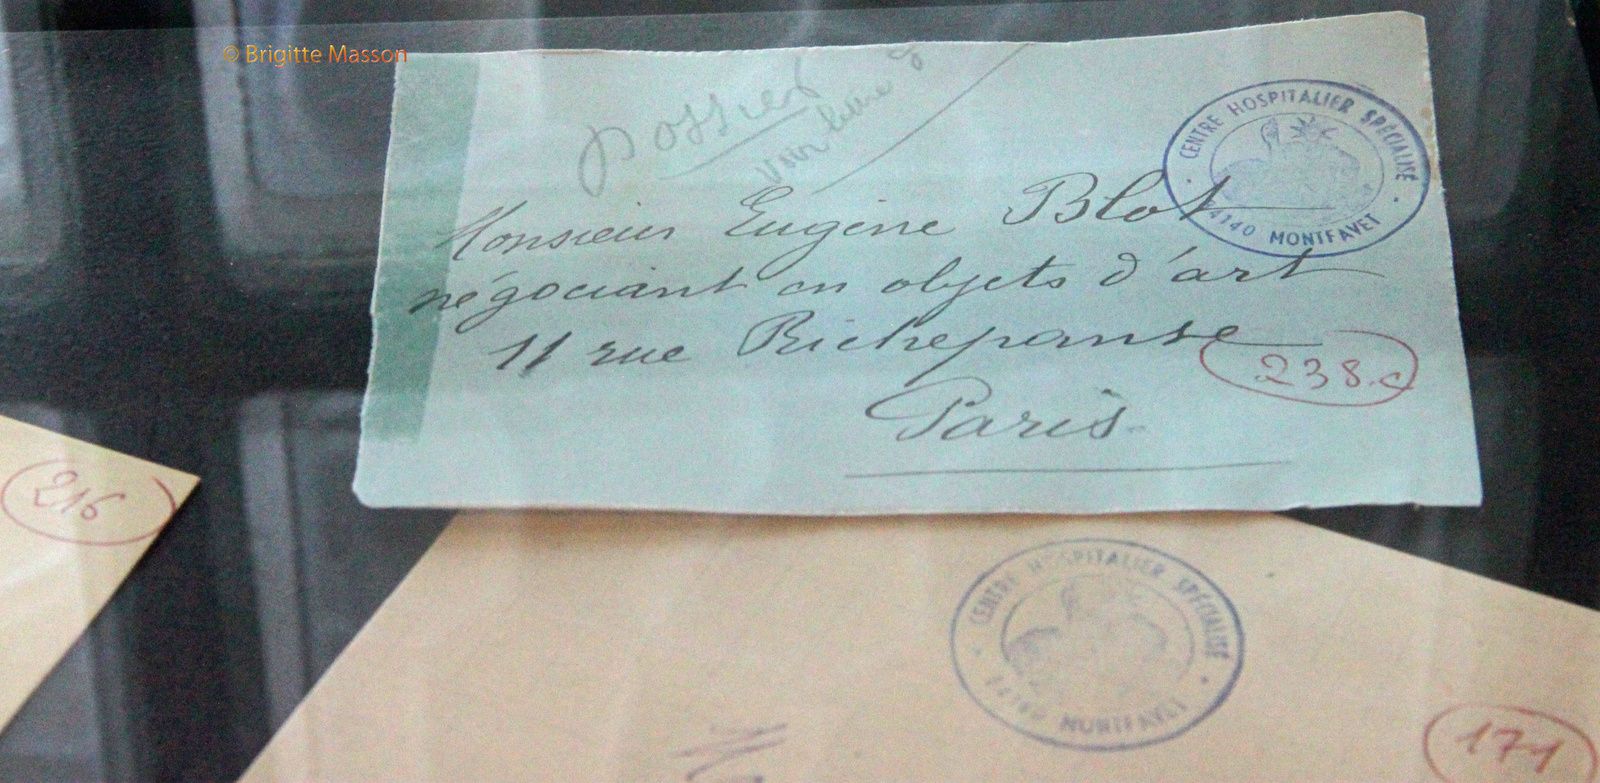 © Brigitte Masson
Dossier
voir lettre
CENTRE HOSPITALIER SPÉCIALISÉ
84140 MONTFAVET
Monsieur Eugène Blot
négociant en objets d'art
11 rue Richepanse
238.c
Paris
216
CENTRE HOSPITALIER SPÉCIALISÉ
84140 MONTFAVET
171